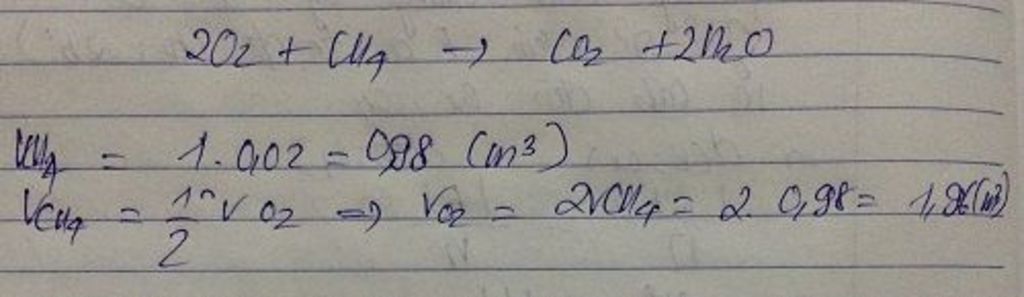 2O2 + CH4 → CO2 + 2H2O
VCH4 = 1.0,02 = 0,98 (m³)
VCH4 = 1/2 V O2 => VO2 = 2VCH4 = 2. 0,98 = 1,96(m³)